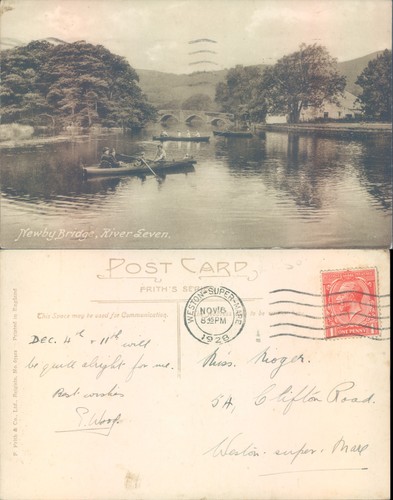 Newby Bridge, River Leven.
POST CARD
FRITH'S SE
This Space may be used for Communication
WESTON-SUPER-MARE
NOV 16
8 PM
1928
ONE PENNY
Dec. 4th & 11th will
be quite alright for me.
Best wishes
Miss. Moger.
5A, Clifton Road.
Weston-super-Mare
F. Frith & Co., Ltd., Reigate.
Printed in England